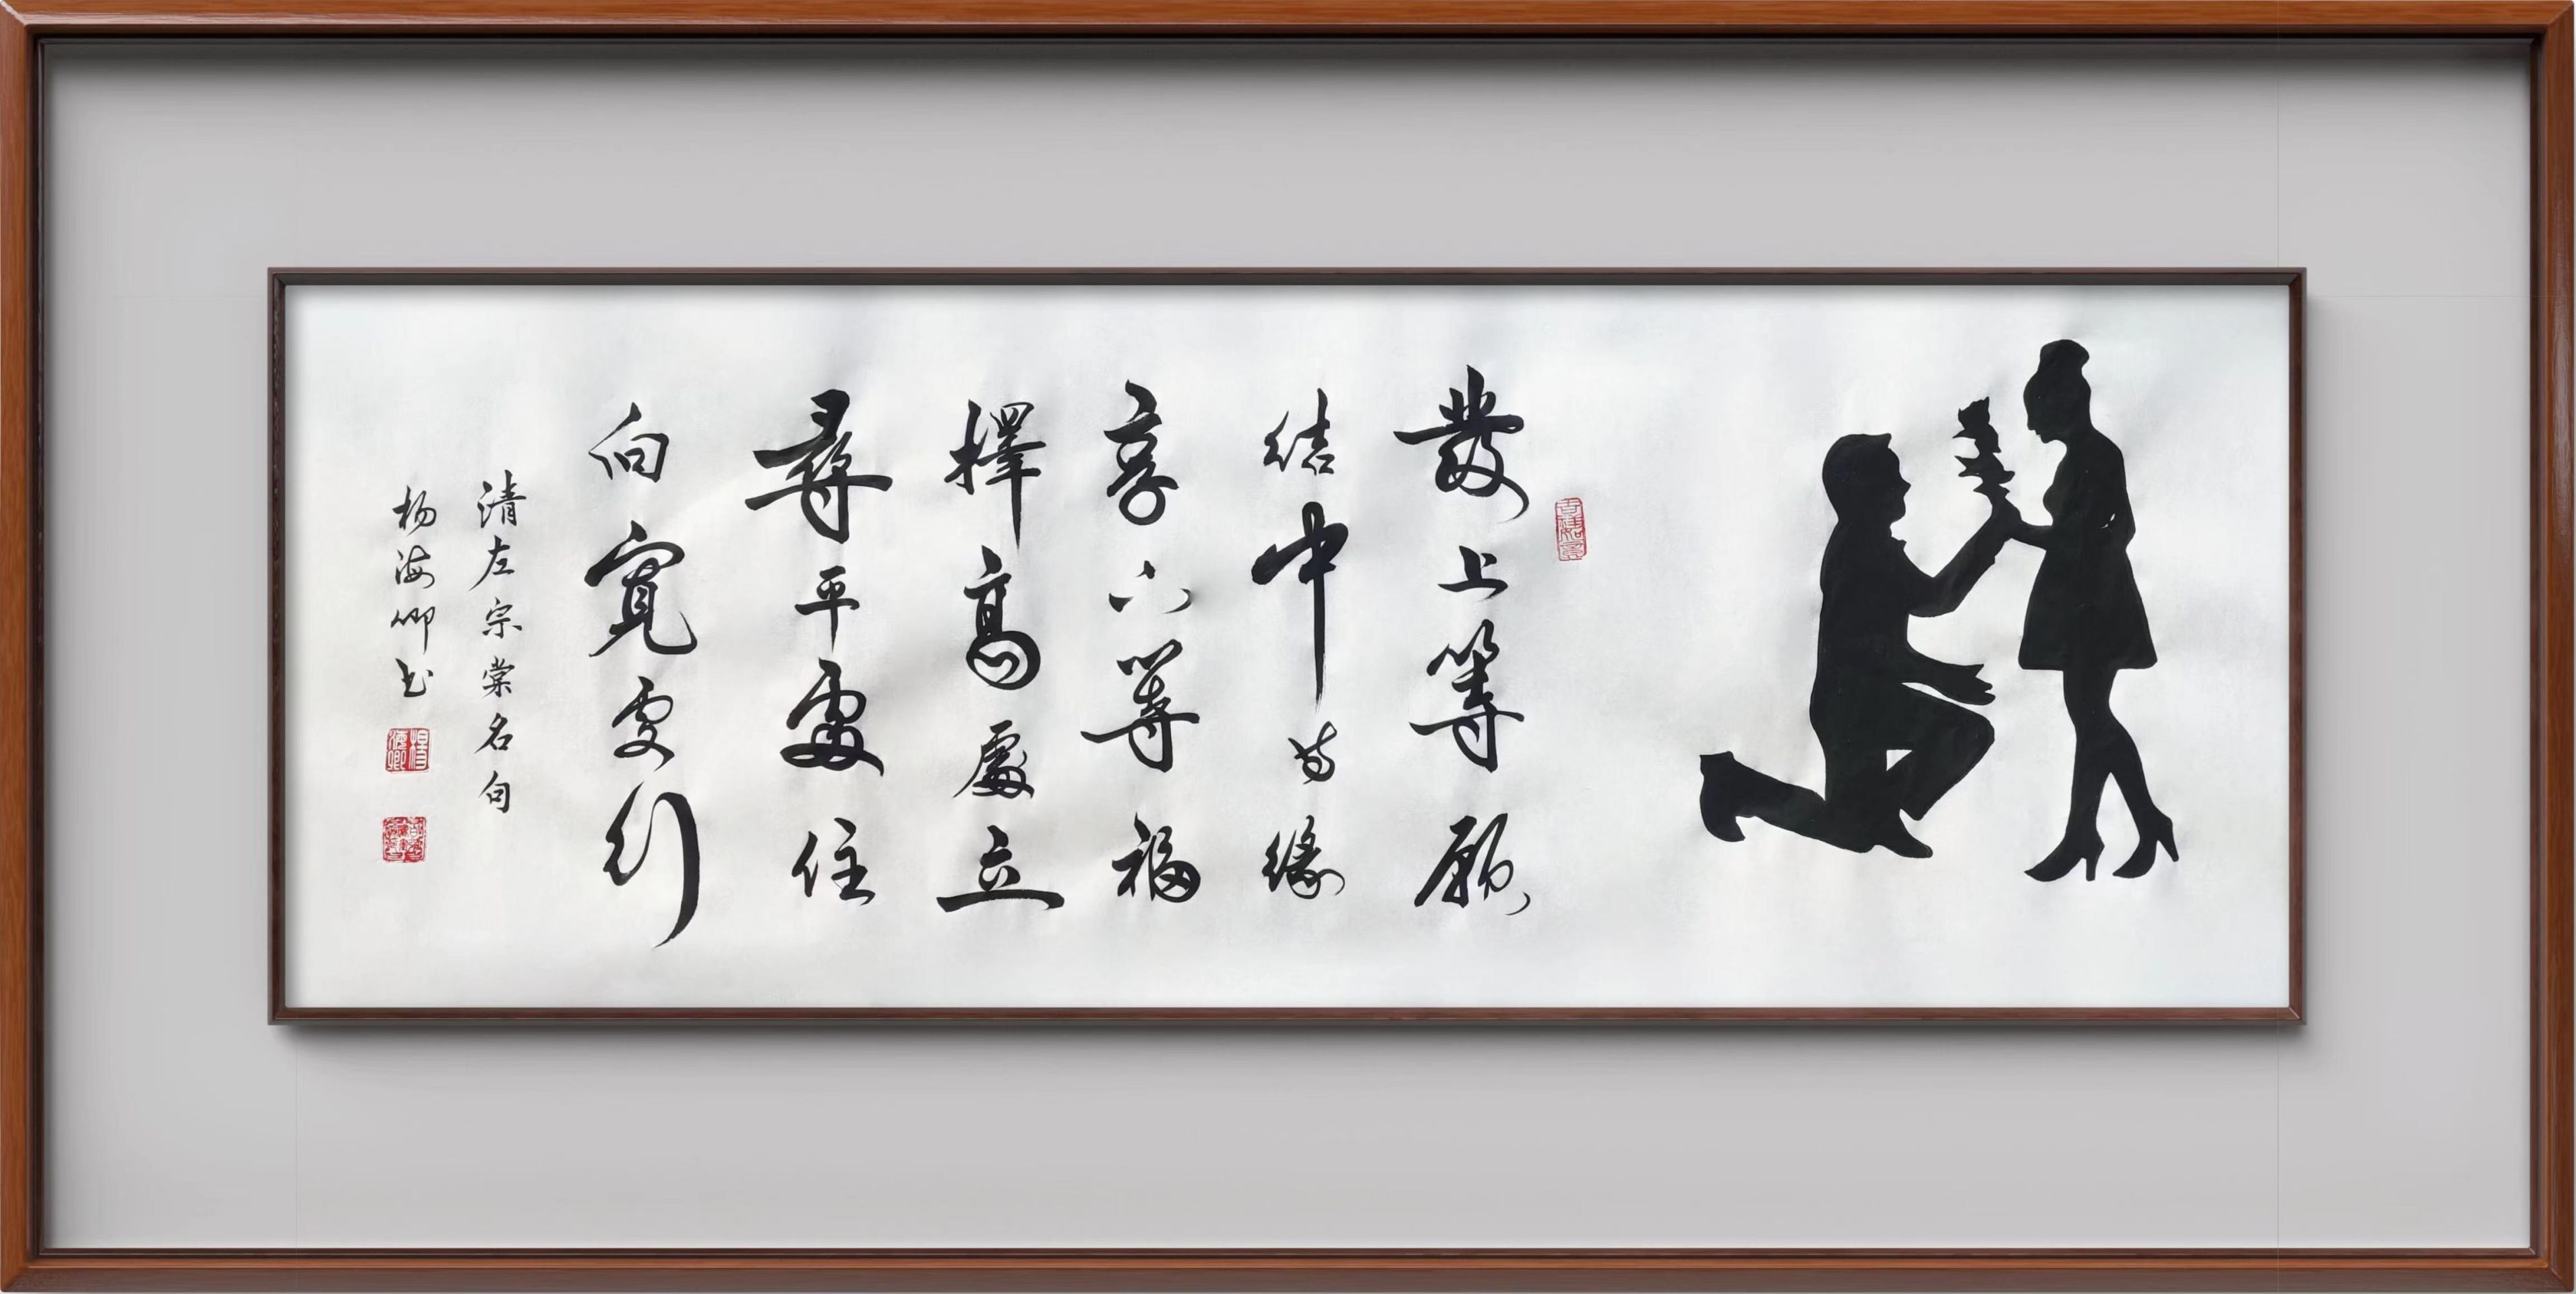 發上等願
结中等缘
享下等福
擇高處立
尋平處住
向寬處行
清左宗棠名句
杨海卿书